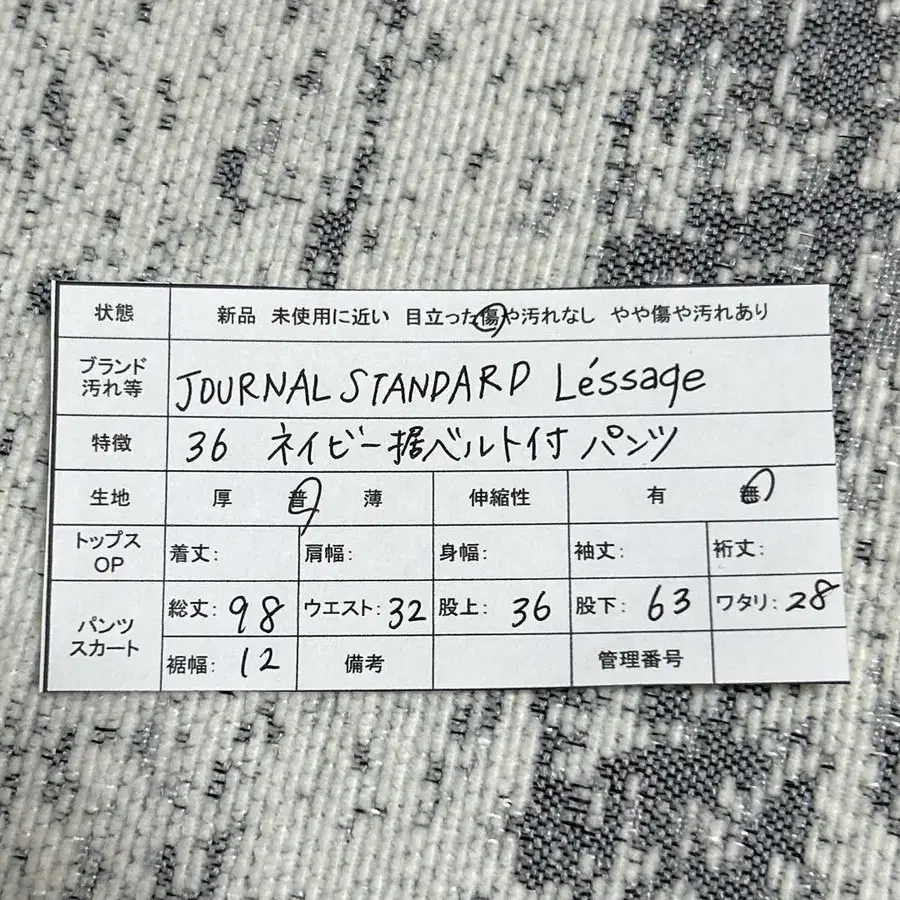 状態 新品 未使用に近い 目立った傷や汚れなし やや傷や汚れあり
ブランド
汚れ等
JOURNAL STANDARD L'éssage
特徴 36 ネイビー裾ベルト付 パンツ
生地 厚 普 薄 伸縮性 有 無
トップス
OP
着丈: 肩幅: 身幅: 袖丈: 裄丈:
パンツ
スカート
総丈: 98 ウエスト: 32 股上: 36 股下: 63 ワタリ: 28
裾幅: 12 備考 管理番号